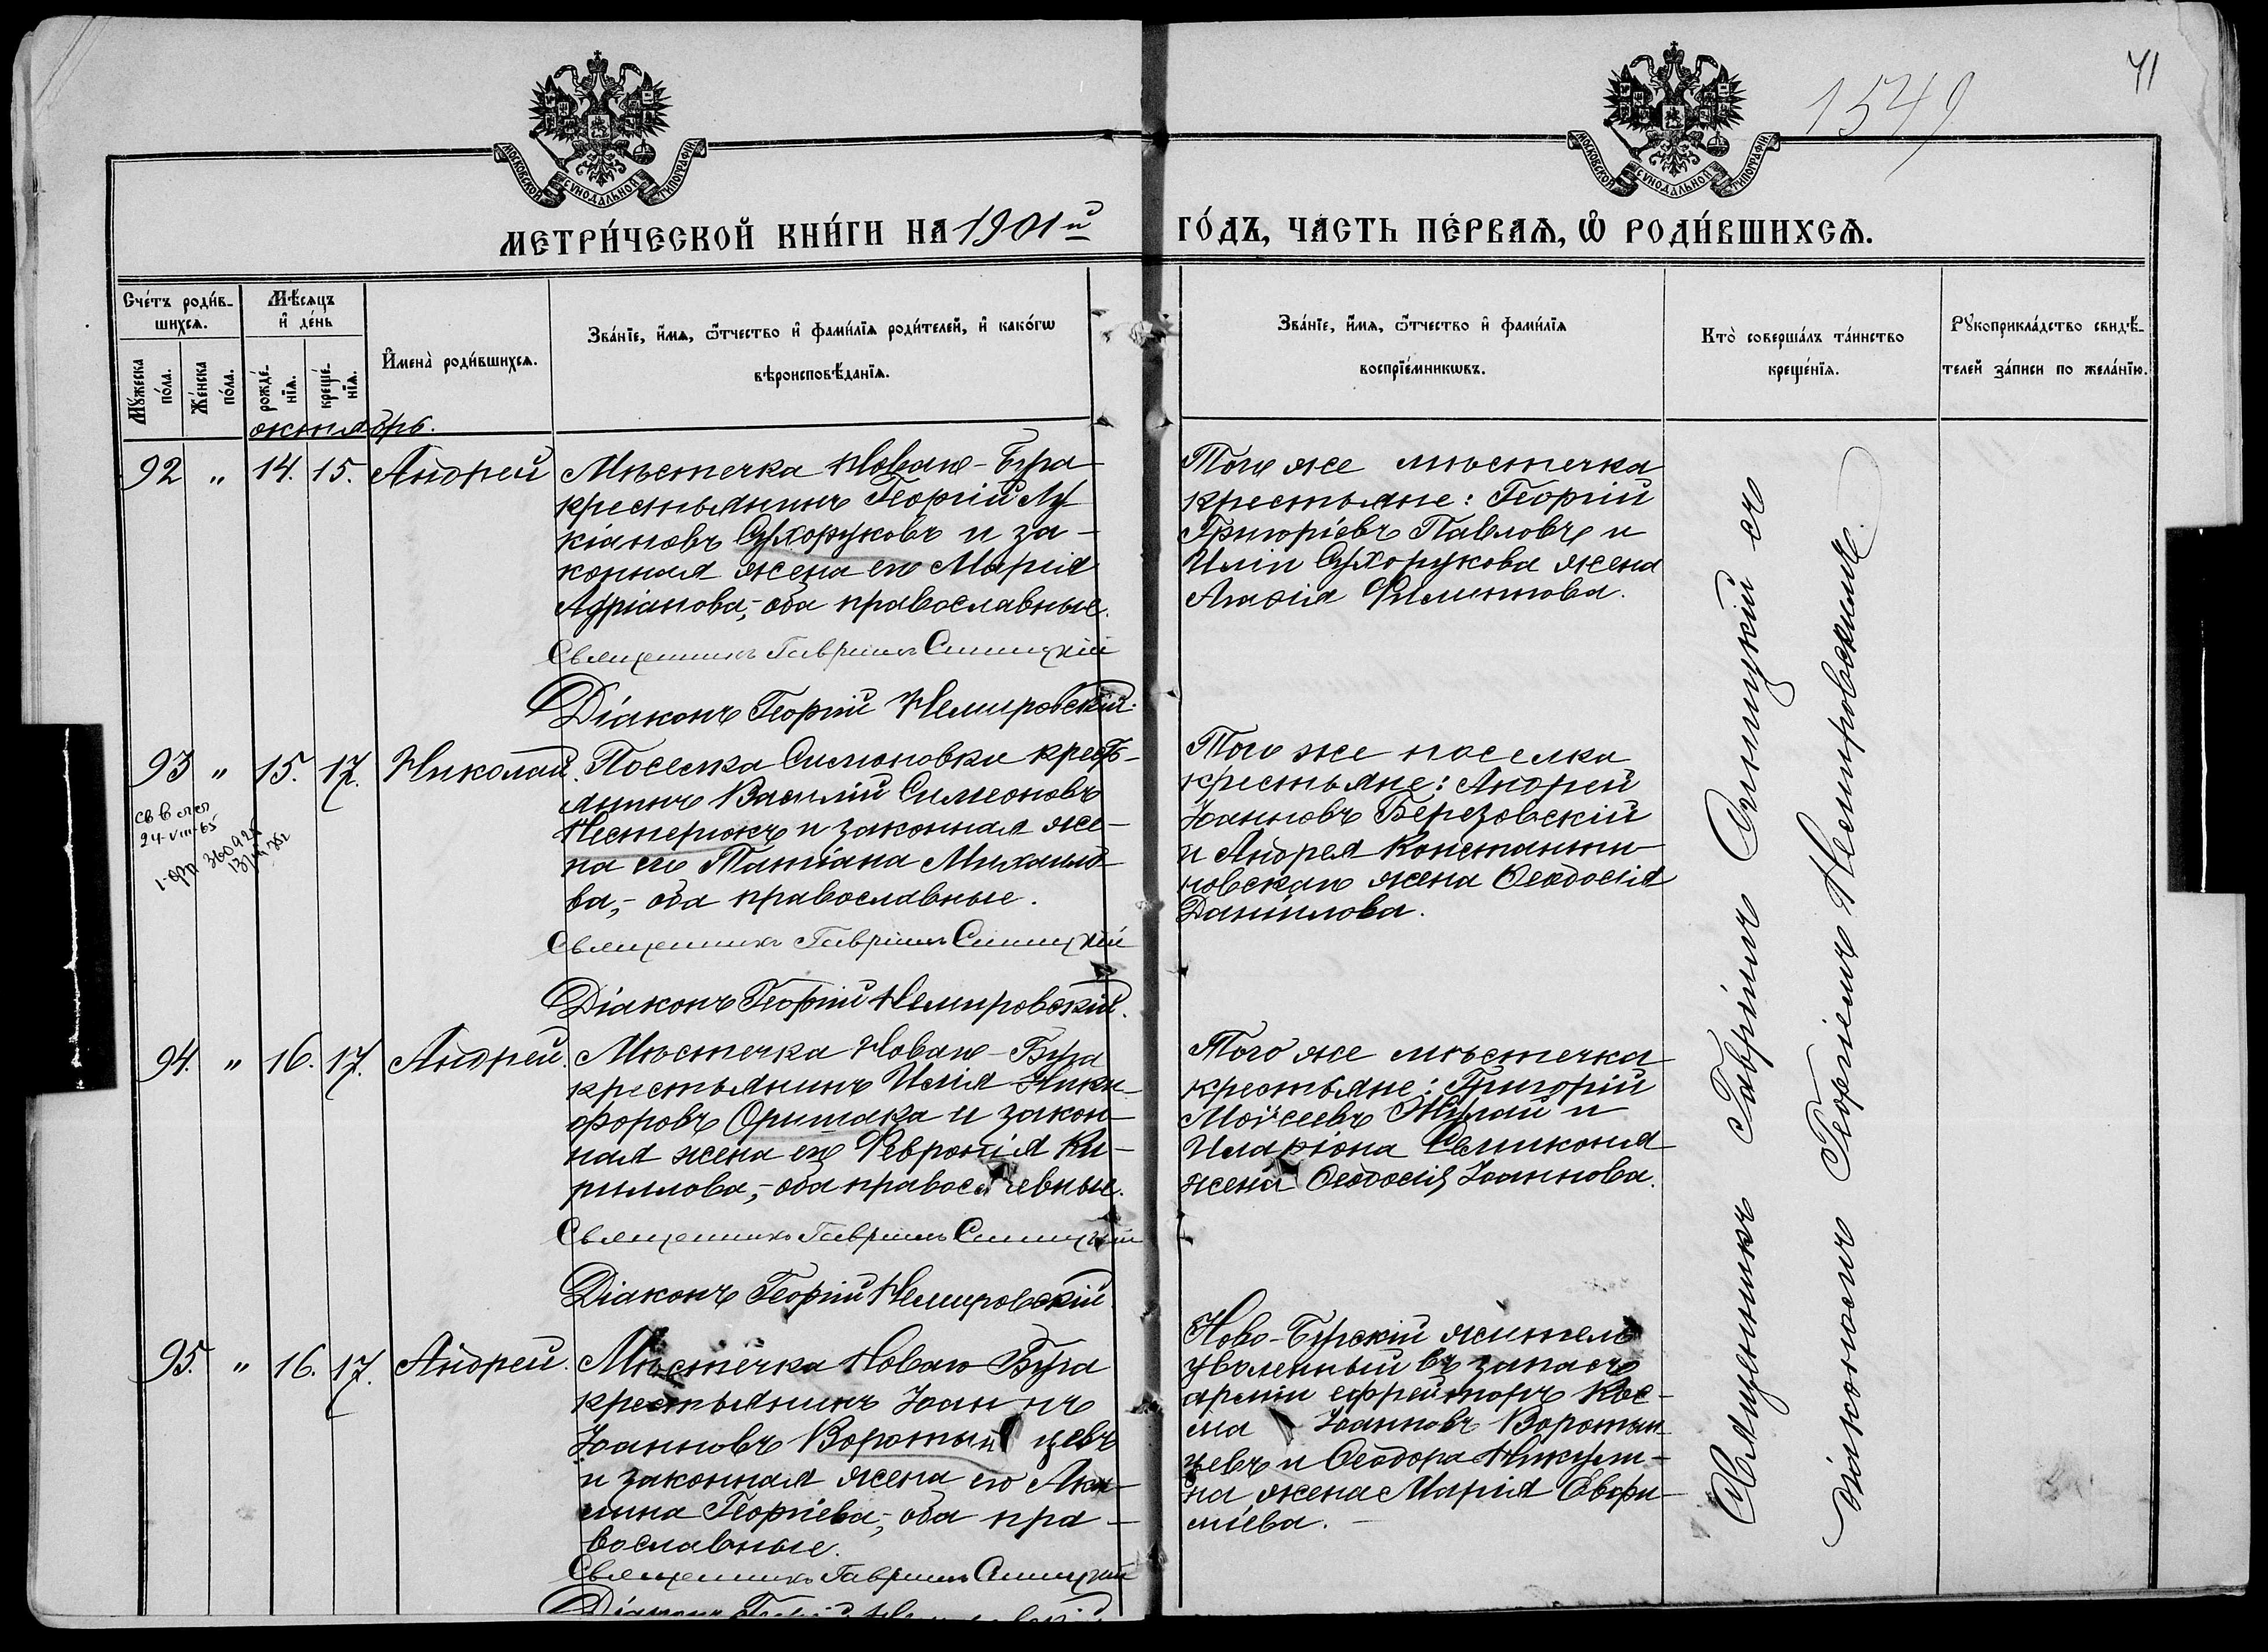 1549
41
МОСКОВСКОЙ СУНОДАЛЬНОЙ ТИПОГРАФІИ
МОСКОВСКОЙ СУНОДАЛЬНОЙ ТИПОГРАФІИ
МЕТРИ́ЧЕСКОЙ КНИ́ГИ НА 1901й ГО́ДЪ, ЧА́СТЬ ПЕ́РВАѦ, Ѡ҆ РОДИ́ВШИХСѦ.
Сче́тъ роди́в-
шихсѧ.
Мꙋ́жеска
по́ла.
Же́нска
по́ла.
Мѣ́сѧцъ
и҆ де́нь
рожде́-
нїѧ.
креще́-
нїѧ.
И҆мена̀ роди́вшихсѧ.
Зва́нїе, и҆́мѧ, ѻ҆́тчество и҆ фами́лїѧ роди́телей, и҆ како́гѡ
вѣроисповѣ́данїѧ.
Зва́нїе, и҆́мѧ, ѻ҆́тчество и҆ фами́лїѧ
воспрїе́мникѡвъ.
Кто̀ соверша́лъ та́инство
креще́нїѧ.
Рꙋкоприкла́дство свидѣ́-
телей за́писи по жела́нїю.
октябрь.
92 „ 14. 15. Андрей
Мѣстечка Новаго-Буга
крестьянинъ Георгій Лу
кіановъ Сухоруковъ и за-
конная жена его Марія
Адріанова,- оба православные.
Священникъ Гавріилъ Синицкій
Діаконъ Георгій Немировскій.
Того же мѣстечка
крестьяне: Георгій
Григоріевъ Павловъ и
Иліи Сухорукова жена
Агафія Филиппова.
93 „ 15. 17. Николай.
24-VIII-65
Поселка Симоновки кресть-
янинъ Василій Симеоновъ
Нестерюкъ и законная же-
на его Татіана Михаило-
ва,- оба православные.
Священникъ Гавріилъ Синицкій
Діаконъ Георгій Немировскій.
Того же поселка
крестьяне: Андрей
Іоанновъ Березовскій
и Андрея Константи-
новскаго жена Ѳеодосія
Даніилова.
94. „ 16. 17. Андрей.
Мѣстечка Новаго-Буга
крестьянинъ Илія Ники-
форовъ Оришака и закон-
ная жена его Февронія Ки-
риллова,- оба православные.
Священникъ Гавріилъ Синицкій
Діаконъ Георгій Немировскій
Того же мѣстечка
крестьяне: Григорій
Моѵсеевъ и
Иларіона жена Ѳеодосія Іоаннова.
95. „ 16. 17. Андрей.
Мѣстечка Новаго Буга
крестьянинъ Іоаннъ
Іоанновъ Воротынцевъ
и законная жена его Аки-
лина Георгіева,- оба пра-
вославные.
Священникъ Гавріилъ Синицкій
Діаконъ Георгій Немировскій
Ново-Бугскій житель
уволенный въ запасъ
арміи ефрейторъ Кос-
ма Іоанновъ Воротын
цевъ и Ѳеодора Никули-
на жена Марія Евфи-
міева.
Священникъ Гавріилъ Синицкій съ
діакономъ Георгіемъ Немировскимъ.